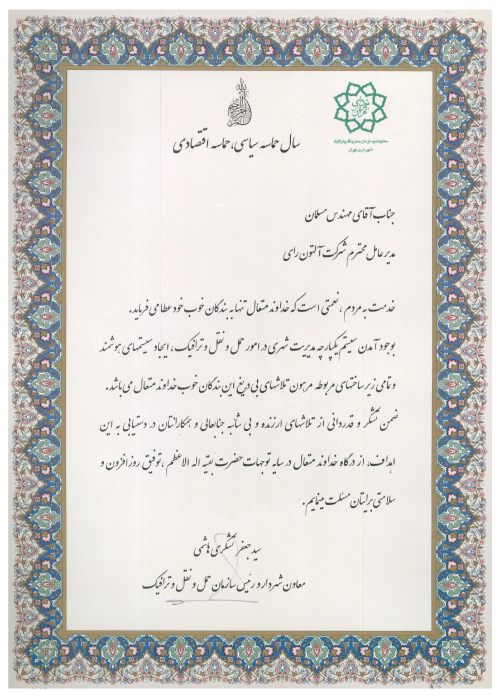 شهرداری تهران
معاونت و سازمان حمل و نقل و ترافیک
شهرداری تهران
سال حماسه سیاسی، حماسه اقتصادی
جناب آقای مهندس مسلمان
مدیر عامل محترم شرکت آلتون رای
خدمت به مردم ، نعمتی است که خداوند متعال تنها به بندگان خوب خود عطا می فرماید.
بوجود آمدن سیستم یکپارچه مدیریت شهری در امور حمل و نقل و ترافیک ، ایجاد سیستمهای هوشمند
و تمامی زیر ساختهای مربوطه مرهون تلاشهای بی دریغ این بندگان خوب خداوند متعال می باشد.
ضمن تشکر و قدردانی از تلاشهای ارزنده و بی شائبه جنابعالی و همکارانتان در دستیابی به این
اهداف، از درگاه خداوند متعال در سایه توجهات حضرت بقیه اله الاعظم ، توفیق روز افزون و
سلامتی برایتان مسئلت مینمایم.
سید جعفر تشکری هاشمی
معاون شهردار و رئیس سازمان حمل و نقل و ترافیک